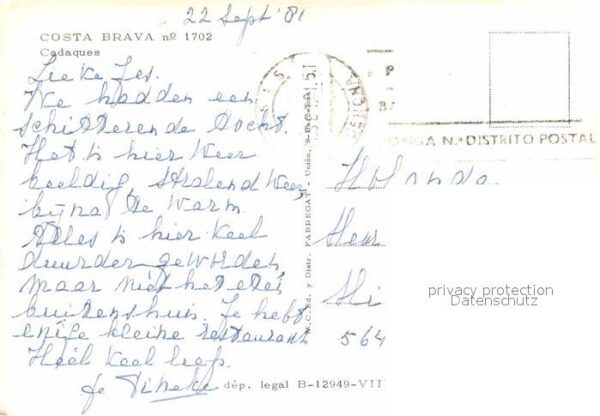 22 Sept '81
COSTA BRAVA nº 1702
Cadaques
Lieke Jes.
We hadden een
schitterende tocht.
Het is hier weer
beeldig, stralend weer,
bijna te warm.
Alles is hier heel
duurder geworden,
maar niet het eten
buitenshuis. Je hebt
enige kleine restaurant
Heel veel liefs.
je Tineke
dép. legal B-12949-VIII
W.C. Ed. y Distr. FABREGAT - Unión, 9-BARNA
PONGA N.º DISTRITO POSTAL
Holanda.
Heer
Hi
564
privacy protection
Datenschutz